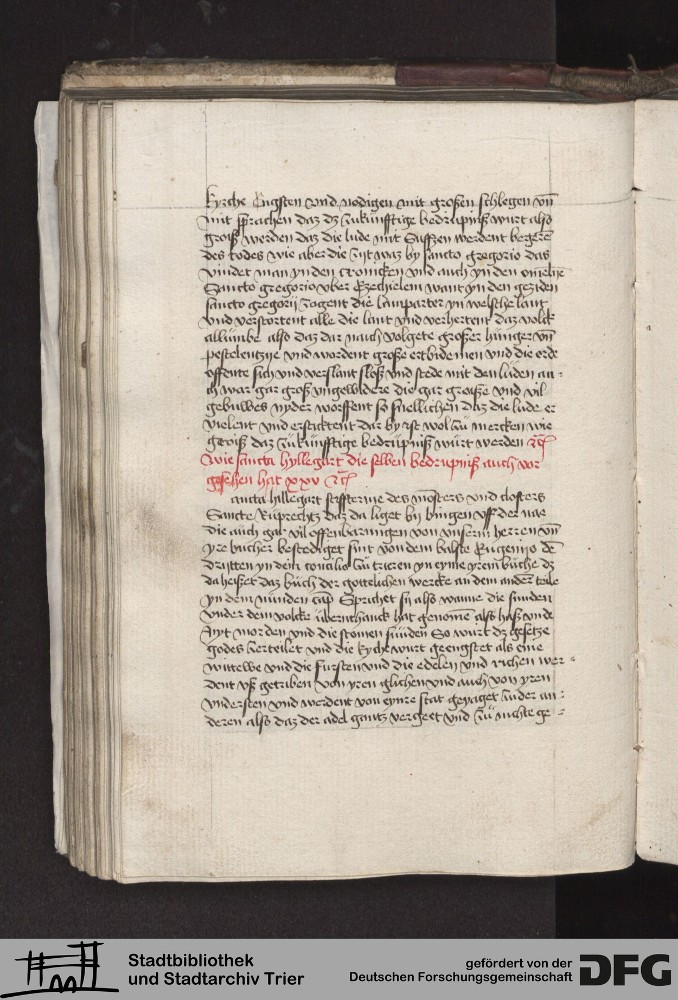 kyrche Engsten vnd nodigen mit großen schlegen vn̄
mit sprachen daz dz zukunfftige bedrupniß wurt also
groiß werden daz die lude mit Suffzen werdent begerē
des todes wie aber die zijt waz by sancto gregorio das
vindet man yn den cronicken vnd auch yn den omelie
Sancto gregorio vber Ezechielem want yn den geziden
sancto gregorij zogent die lamparter yn welsche lant
vnd verstortent alle die lant vnd verhertent daz volck
allumbe also daz dar nach volgete großer hunger vn̄
pestelentzije vnd wordent große ertbidemen vnd die erde
offente sich vnd verslant sloß vnd stede mit den luden au
ch war gar groß vngewidere die gar groiße vnd vil
gebuwes nyder worffent so snellichen daz die lude er
vielent vnd ersticktent dar by ist wol zu mercken wie
groiß daz zukunfftige bedrupniß wurt werden ꝛc
Wie sancta hyllegart die selben bedrupniß auch vor
gesehen hat xxv ꝛc
ancta hillegart stiffterine des mōsters vnd closters
Sancte Ruprechtz daz da liget by bingen vff der nae
die auch gar vil offenbarungen von vnserm herren vn̄
yre bucher bestediget sint von dem babste Eugenijo dē
dritten yn dem concilio zu trieren yn eyme yrem buche dz
da heißet daz buch der gottelichen wercke an dem andern teile
yn dem nunden cap̄ Sprichet sij also wanne die sunden
vnder dem volcke uberschanck hat genomē also haß vnde
Nyt morden vnd die stomen sunden So wurt dz gesetze
godes verteilet vnd die kyrche wurt geengstet als eine
wittwe vnd die fursten vnd die edelen vnd richen wer
dent vß getriben von yren glichen vnd auch von yren
vndersten vnd werdent von eynre stat geyaget zu der an
deren also daz der adel gantz vergeet vnd zu nichte ge
Stadtbibliothek
und Stadtarchiv Trier
gefördert von der
Deutschen Forschungsgemeinschaft
DFG